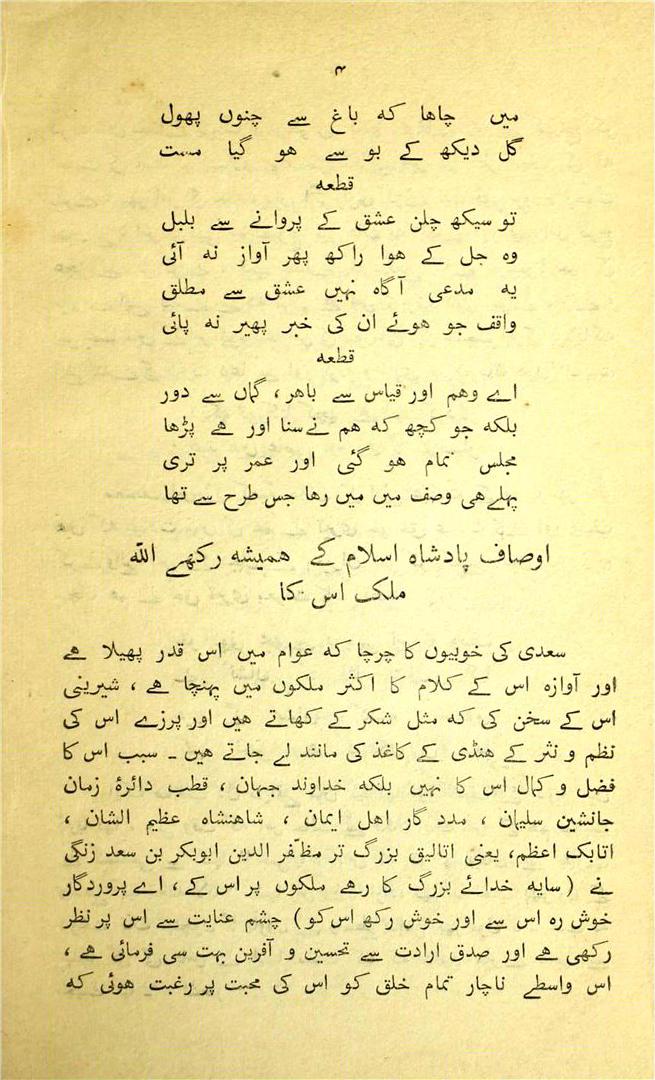 ۴
میں چاھا کہ باغ سے چنوں پھول
گل دیکھ کے بو سے ھو گیا مست
قطعہ
تو سیکھ چلن عشق کے پروانے سے بلبل
وہ جل کے ھوا راکھ پھر آواز نہ آئی
یہ مدعی آگاہ نہیں عشق سے مطلق
واقف جو ھوئے ان کی خبر پھیر نہ پائی
قطعہ
اے وھم اور قیاس سے باھر، گماں سے دور
بلکہ جو کچھ کہ ھم نے سنا اور ھے پڑھا
مجلس تمام ھو گئی اور عمر پر تری
پہلے ھی وصف میں میں رھا جس طرح سے تھا
اوصاف پادشاہ اسلام کے ھمیشہ رکھے اللہ
ملک اس کا
سعدی کی خوبیوں کا چرچا کہ عوام میں اس قدر پھیلا ھے
اور آوازہ اس کے کلام کا اکثر ملکوں میں پہنچا ھے، شیرینی
اس کے سخن کی کہ مثل شکر کے کھاتے ھیں اور پرزے اس کی
نظم و نثر کے ھنڈی کے کاغذ کی مانند لے جاتے ھیں ۔ سبب اس کا
فضل و کمال اس کا نہیں بلکہ خداوند جہان، قطب دائرۂ زمان
جانشین سلیمان، مدد گار اھل ایمان، شاھنشاہ عظیم الشان،
اتابک اعظم، یعنی اتالیق بزرگ تر مظفّر الدین ابوبکر بن سعد زنگی
نے (سایہ خدائے بزرگ کا رھے ملکوں پر اس کے، اے پروردگار
خوش رہ اس سے اور خوش رکھ اس کو) چشم عنایت سے اس پر نظر
رکھی ھے اور صدق ارادت سے تحسین و آفرین بہت سی فرمائی ھے،
اس واسطے ناچار تمام خلق کو اس کی محبت پر رغبت ھوئی کہ